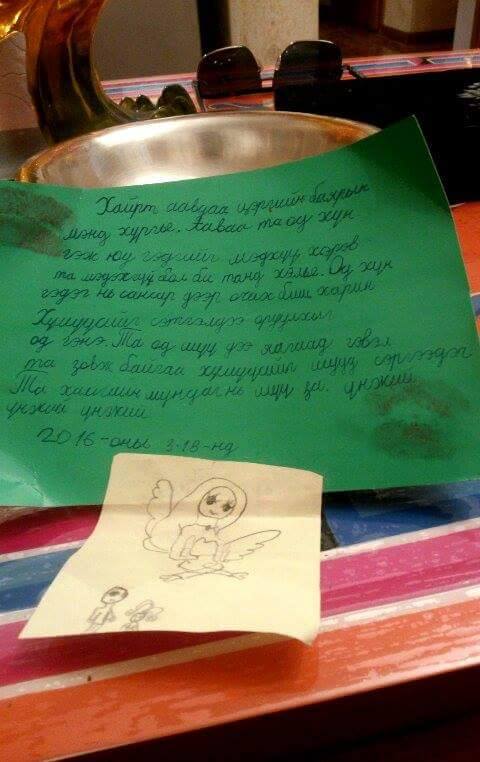 Хайрт аавдаа цэргийн баярын
мэнд хүргье. Аавaа та од хүн
гэж юу гэдгийг мэдхүү хэрэв
та мэдэхгүй бол би танд хэлье. Од хүн
гэдэг нь сансар дээр очих биш харин
Хүмүүсийг сэтгэлдээ оруулхыг
од гэнэ. Та од шүү дээ яагаад гэвэл
та зовж байгаа хүмүүсийг шууд сэргээдэг
Та хамгийн мундаг нь шүү за. үнжий
үнжий үнжий
2016-оны 3-18-нд